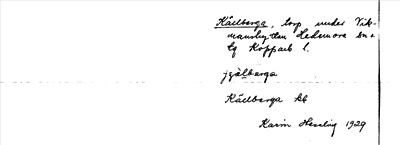 Källberga, torp under Vik-
manshyttan Hedemora sn.
Kopparb. l.
jgälberga
Källberga kb
Karin Hessling 1929